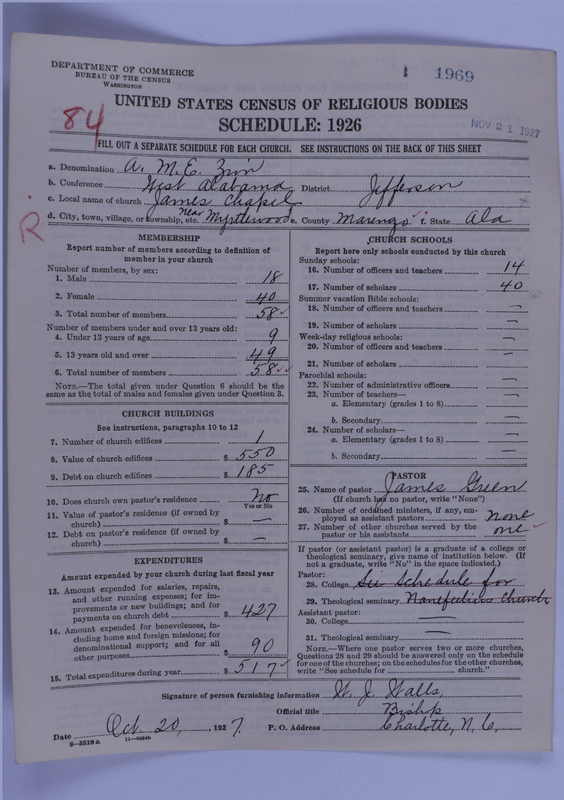 DEPARTMENT OF COMMERCE
BUREAU OF THE CENSUS
WASHINGTON
1 1969
UNITED STATES CENSUS OF RELIGIOUS BODIES
84
SCHEDULE: 1926
NOV 21 1927
FILL OUT A SEPARATE SCHEDULE FOR EACH CHURCH. SEE INSTRUCTIONS ON THE BACK OF THIS SHEET
a. Denomination A. M. E. Zion
b. Conference West Alabama District Jefferson
c. Local name of church James Chapel
d. City, town, village, or township, etc. Near Myrtlewood e. County Marengo f. State Ala
R
MEMBERSHIP
Report number of members according to definition of
member in your church
Number of members, by sex:
1. Male 18
2. Female 40
3. Total number of members 58
Number of members under and over 13 years old:
4. Under 13 years of age 9
5. 13 years old and over 49
6. Total number of members 58
NOTE.—The total given under Question 6 should be
the same as the total of males and females given under Question 3.
CHURCH BUILDINGS
See instructions, paragraphs 10 to 12
7. Number of church edifices 1
8. Value of church edifices $ 550
9. Debt on church edifices $ 185
10. Does church own pastor's residence No
Yes or No
11. Value of pastor's residence (if owned by
church) $ —
12. Debt on pastor's residence (if owned by
church) $ —
EXPENDITURES
Amount expended by your church during last fiscal year
13. Amount expended for salaries, repairs,
and other running expenses; for im-
provements or new buildings; and for
payments on church debt $ 427
14. Amount expended for benevolences, in-
cluding home and foreign missions; for
denominational support; and for all
other purposes $ 90
15. Total expenditures during year $ 517
CHURCH SCHOOLS
Report here only schools conducted by this church
Sunday schools:
16. Number of officers and teachers 14
17. Number of scholars 40
Summer vacation Bible schools:
18. Number of officers and teachers —
19. Number of scholars —
Week-day religious schools:
20. Number of officers and teachers —
21. Number of scholars —
Parochial schools:
22. Number of administrative officers —
23. Number of teachers—
a. Elementary (grades 1 to 8) —
b. Secondary —
24. Number of scholars—
a. Elementary (grades 1 to 8) —
b. Secondary —
PASTOR
25. Name of pastor James Green
(If church has no pastor, write "None")
26. Number of ordained ministers, if any, em-
ployed as assistant pastors none
27. Number of other churches served by the
pastor or his assistants one
If pastor (or assistant pastor) is a graduate of a college or
theological seminary, give name of institution below. (If
not a graduate, write "No" in the space indicated.)
Pastor:
28. College See Schedule for
29. Theological seminary Church
Assistant pastor:
30. College —
31. Theological seminary —
NOTE.—Where one pastor serves two or more churches,
Questions 28 and 29 should be answered only on the schedule
for one of the churches; on the schedules for the other churches,
write "See schedule for church."
Signature of person furnishing information W. J. Walls,
Official title Bishp
Date Oct. 20, 1927. P. O. Address Charlotte, N. C.
8-5318 a 11-9354b